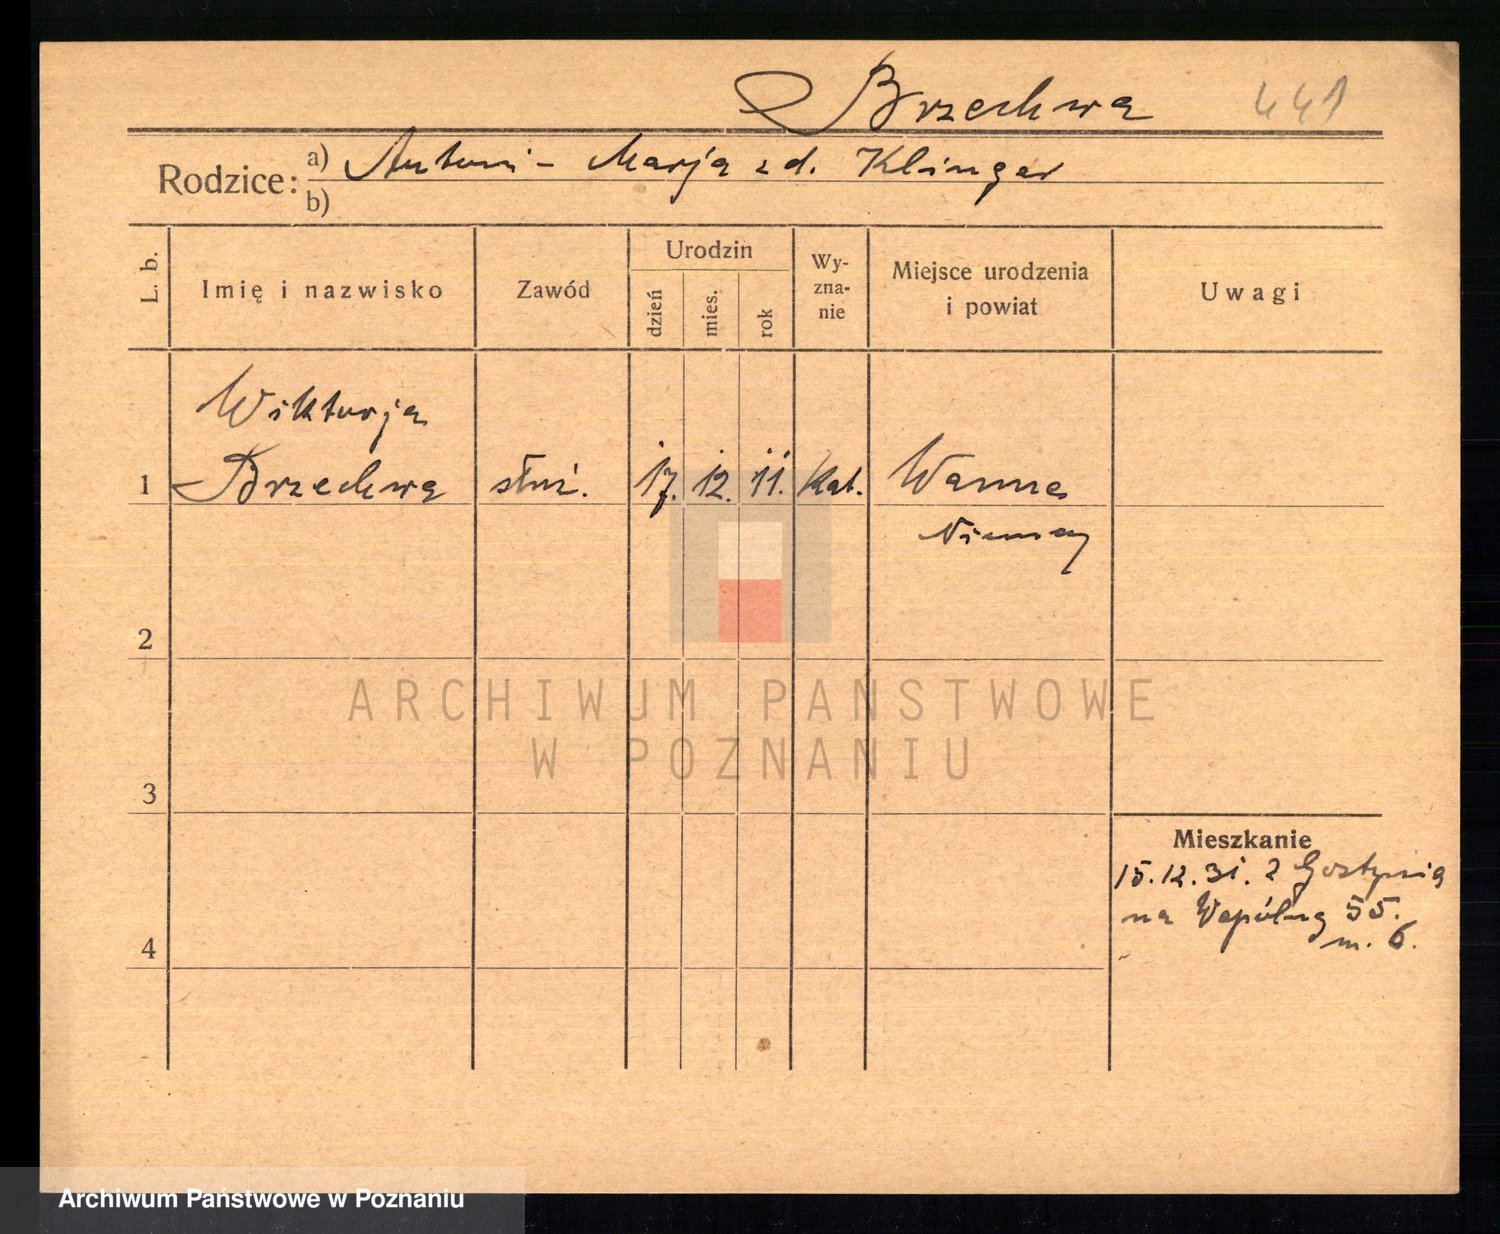 Brzechwa 441
Rodzice: a) Antoni - Marja z d. Klinger
b)
L. b. Imię i nazwisko Zawód Urodzin dzień mies. rok Wyzna-nie Miejsce urodzenia i powiat Uwagi
Wiktorja
1 Brzechwa służ. 17. 12. 11. Kat. Wanne
Niemcy
2
ARCHIWUM PAŃSTWOWE
W POZNANIU
3
Mieszkanie
15.12.31. z Gostynia
na Wspólną 55.
m. 6.
4
Archiwum Państwowe w Poznaniu